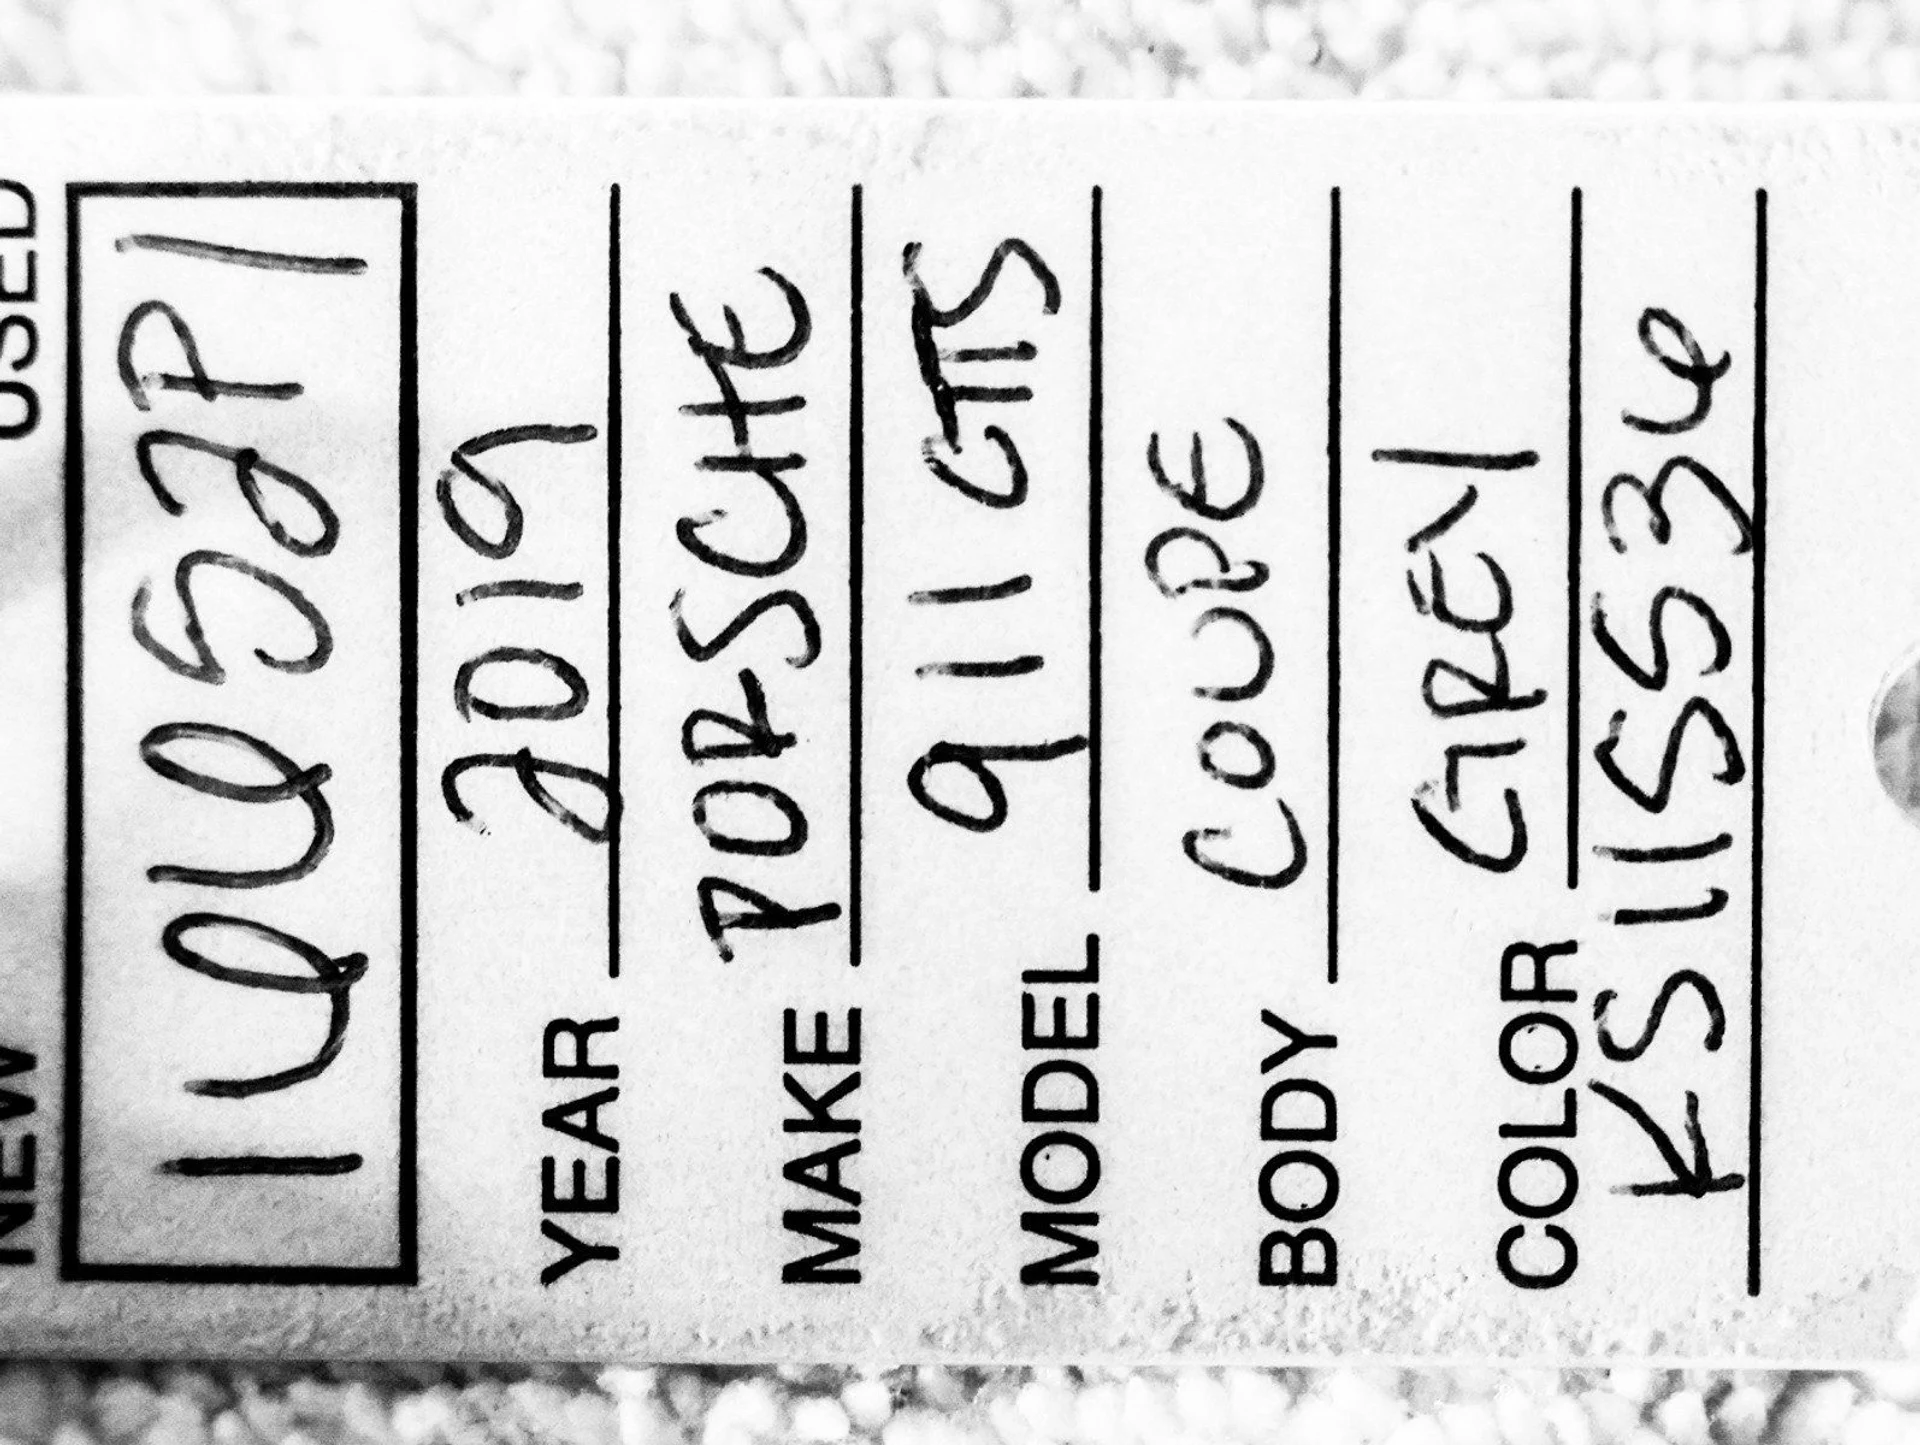 NEW USED
16652P1
YEAR 2019
MAKE PORSCHE
MODEL 911 GTS
BODY COUPE
COLOR GREY
KS115536